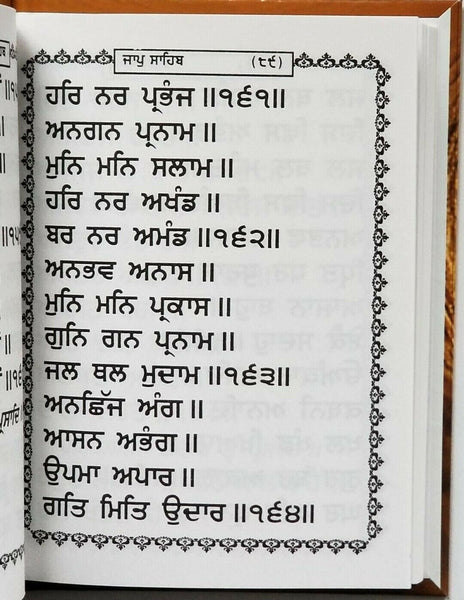 ਜਾਪੁ ਸਾਹਿਬ (੮੯)
ਹਰਿ ਨਰ ਪ੍ਰਭੰਜ ॥੧੬੧॥
ਅਨਗਨ ਪ੍ਰਨਾਮ ॥
ਮੁਨਿ ਮਨਿ ਸਲਾਮ ॥
ਹਰਿ ਨਰ ਅਖੰਡ ॥
ਬਰ ਨਰ ਅਮੰਡ ॥੧੬੨॥
ਅਨਭਵ ਅਨਾਸ ॥
ਮੁਨਿ ਮਨਿ ਪ੍ਰਕਾਸ ॥
ਗੁਨਿ ਗਨ ਪ੍ਰਨਾਮ ॥
ਜਲ ਥਲ ਮੁਦਾਮ ॥੧੬੩॥
ਅਨਛਿੱਜ ਅੰਗ ॥
ਆਸਨ ਅਭੰਗ ॥
ਉਪਮਾ ਅਪਾਰ ॥
ਗਤਿ ਮਿਤਿ ਉਦਾਰ ॥੧੬੪॥